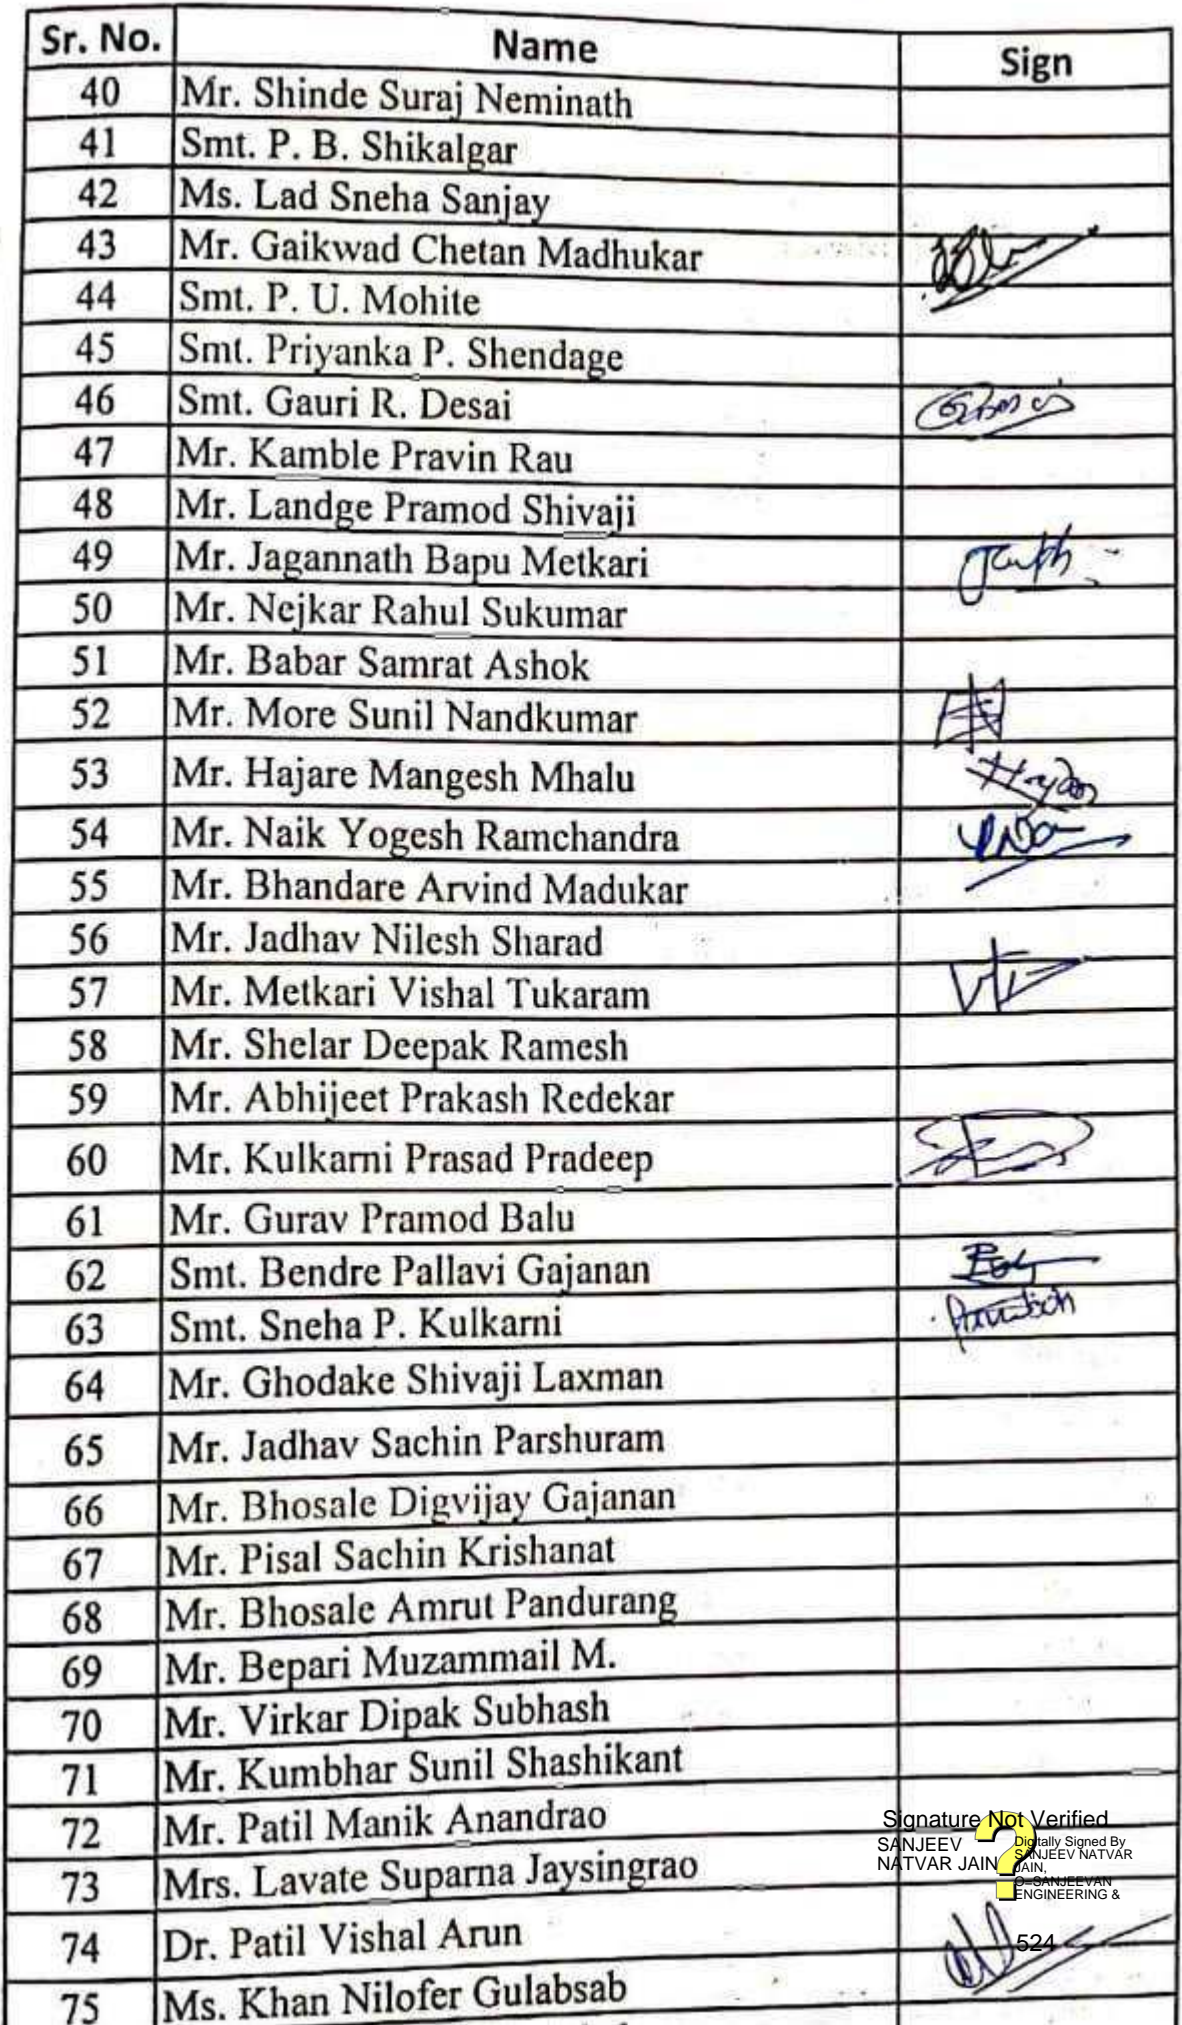 Sr. No. Name Sign
40 Mr. Shinde Suraj Neminath
41 Smt. P. B. Shikalgar
42 Ms. Lad Sneha Sanjay
43 Mr. Gaikwad Chetan Madhukar
44 Smt. P. U. Mohite
45 Smt. Priyanka P. Shendage
46 Smt. Gauri R. Desai
47 Mr. Kamble Pravin Rau
48 Mr. Landge Pramod Shivaji
49 Mr. Jagannath Bapu Metkari
50 Mr. Nejkar Rahul Sukumar
51 Mr. Babar Samrat Ashok
52 Mr. More Sunil Nandkumar
53 Mr. Hajare Mangesh Mhalu
54 Mr. Naik Yogesh Ramchandra
55 Mr. Bhandare Arvind Madukar
56 Mr. Jadhav Nilesh Sharad
57 Mr. Metkari Vishal Tukaram
58 Mr. Shelar Deepak Ramesh
59 Mr. Abhijeet Prakash Redekar
60 Mr. Kulkarni Prasad Pradeep
61 Mr. Gurav Pramod Balu
62 Smt. Bendre Pallavi Gajanan
63 Smt. Sneha P. Kulkarni
64 Mr. Ghodake Shivaji Laxman
65 Mr. Jadhav Sachin Parshuram
66 Mr. Bhosale Digvijay Gajanan
67 Mr. Pisal Sachin Krishanat
68 Mr. Bhosale Amrut Pandurang
69 Mr. Bepari Muzammail M.
70 Mr. Virkar Dipak Subhash
71 Mr. Kumbhar Sunil Shashikant
72 Mr. Patil Manik Anandrao
Signature Not Verified
SANJEEV
NATVAR JAIN
Digitally Signed By
SANJEEV NATVAR
JAIN,
O=SANJEEVAN
ENGINEERING &
73 Mrs. Lavate Suparna Jaysingrao
74 Dr. Patil Vishal Arun
524
75 Ms. Khan Nilofer Gulabsab